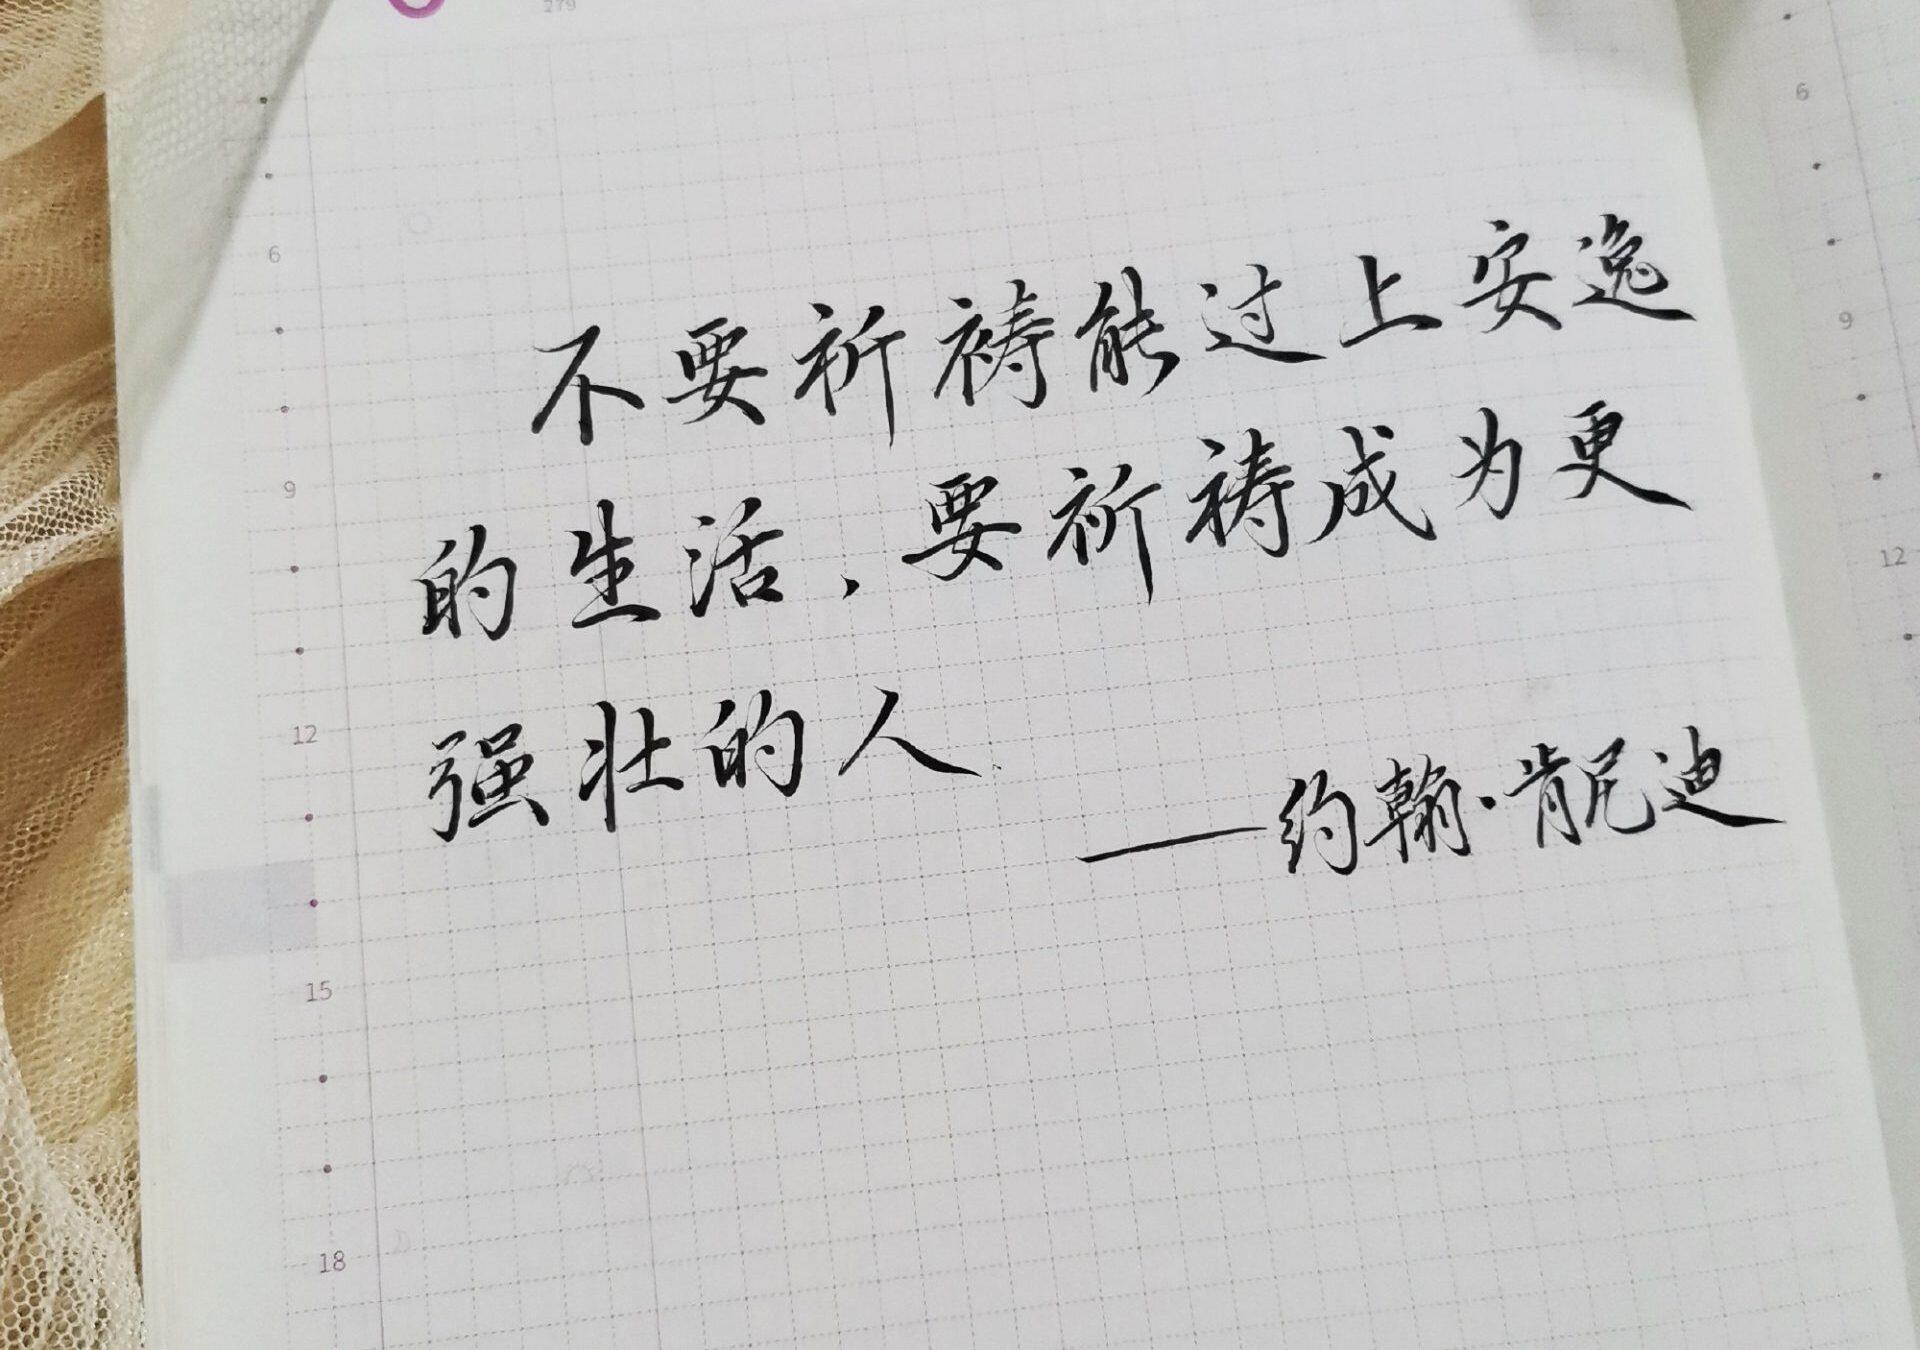 279
不要祈祷能过上安逸
的生活，要祈祷成为更
强壮的人
——约翰·肯尼迪
6
9
12
15
18
6
9
12